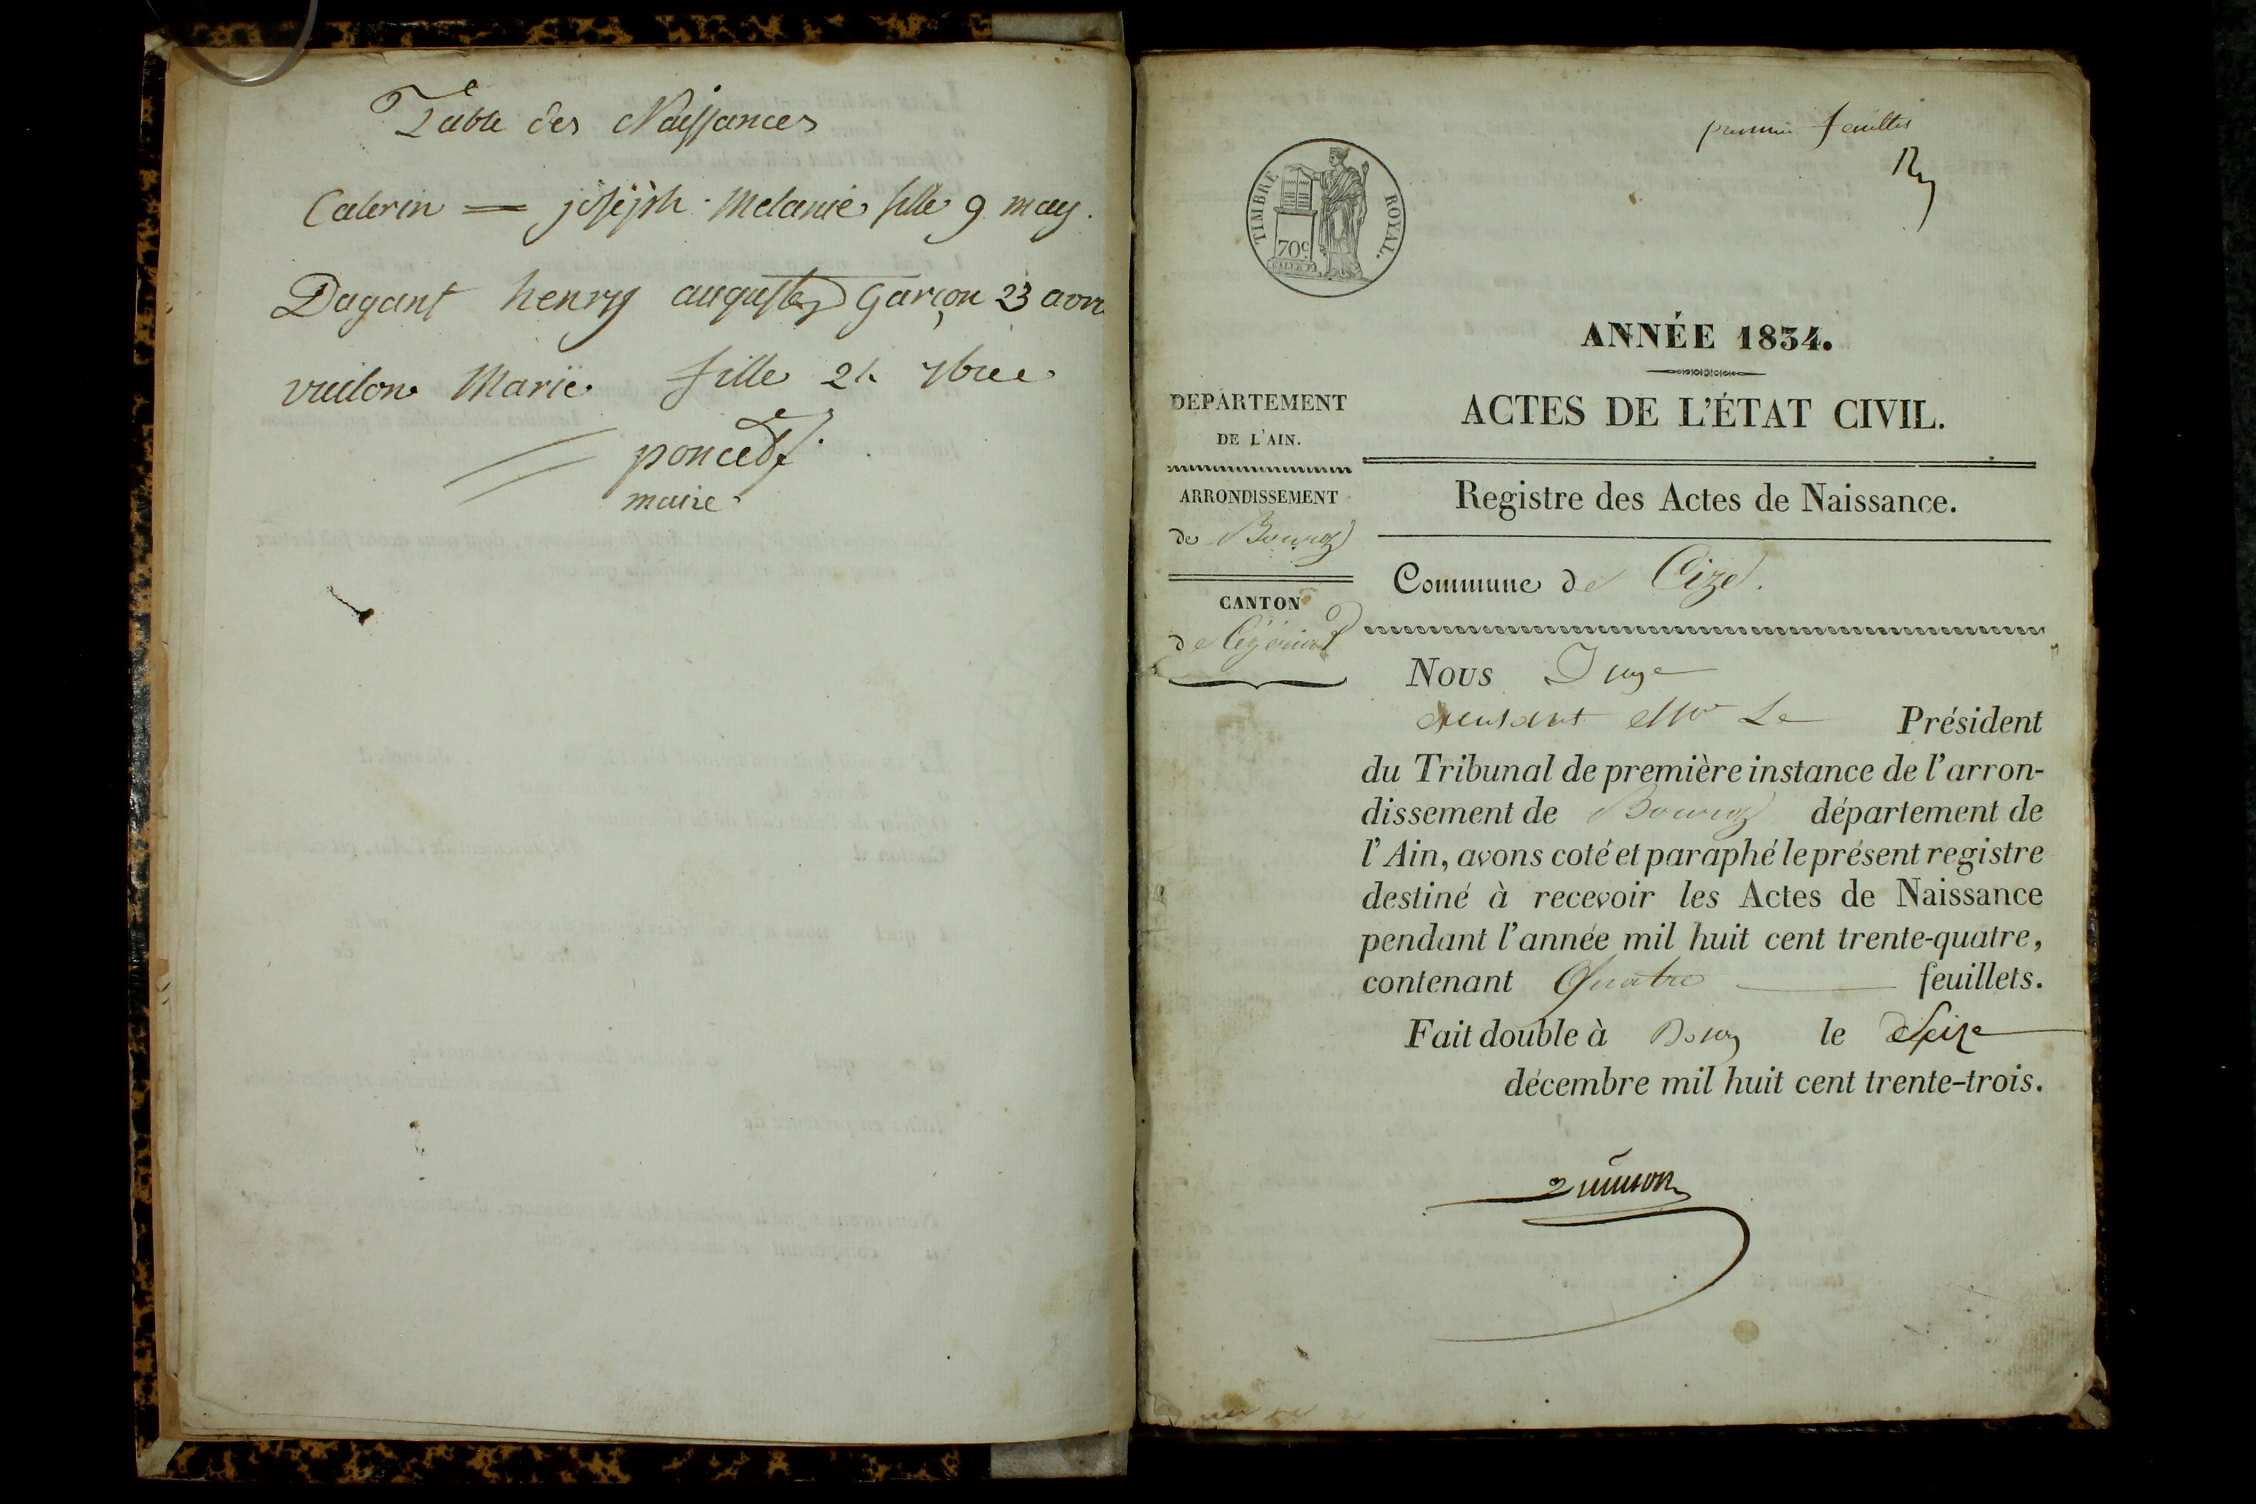 Table des Naissances
Calerin = joséph Melanie fille 9 may.
Dagant henry auguste Garçon 23 avri
vuilon Marie fille 21 7bre
poncet
maire
premier feuillet
TIMBRE ROYAL.
70c
ANNÉE 1834.
DEPARTEMENT
DE L'AIN.
ACTES DE L'ÉTAT CIVIL.
ARRONDISSEMENT
de Bourg
Registre des Actes de Naissance.
CANTON
de Ceyzériat
Commune de Cize.
Nous Juge
Mr Le Président
du Tribunal de première instance de l'arron-
dissement de Bourg département de
l'Ain, avons coté et paraphé le présent registre
destiné à recevoir les Actes de Naissance
pendant l'année mil huit cent trente-quatre,
contenant Quatre feuillets.
Fait double à Bourg le Seize
décembre mil huit cent trente-trois.